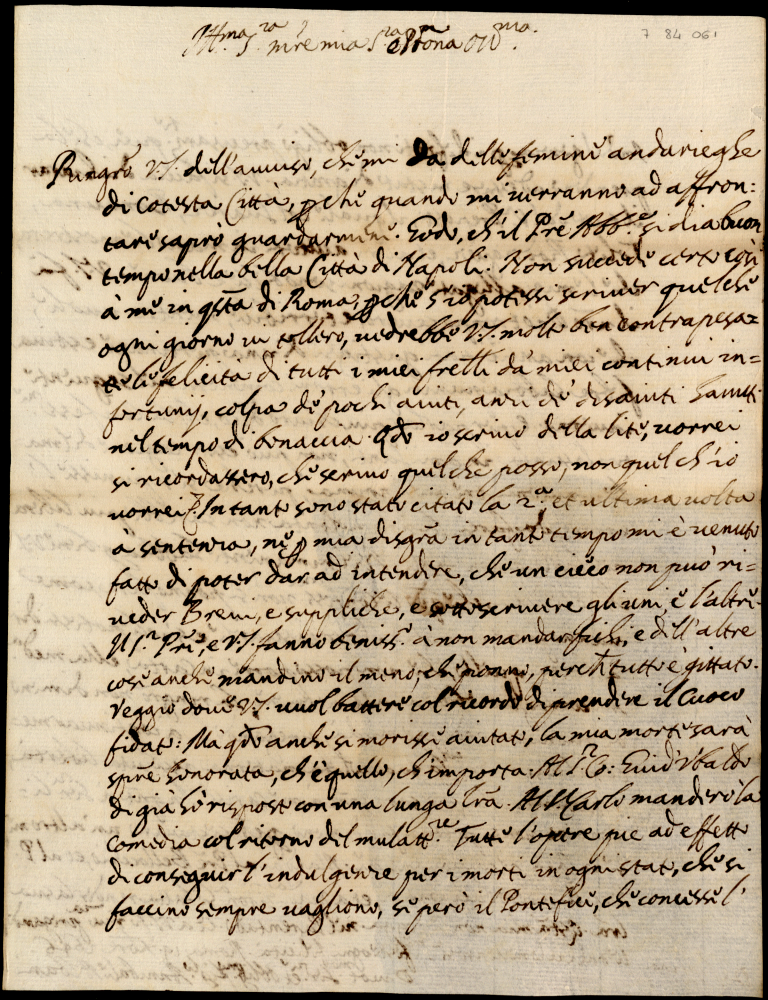 Ill.ma S.ra mre mia S.ra e Prona Oss.ma
7 84 061
Ringrõ V.S. dell'auuiso, che mi da delle femine andarieghe
di cotesta Città, p che quando mi uerranno ad affron:
tare sapró guardarmene. Godo, ch'il Prẽ Abb.e si dia buon
tempo nella bella Città di Napoli. Non succede certo cosi
à me in qsta di Roma; p che s'io potessi scriuer quel che
ogni giorno in tollero, uedrebbe V.S. molto ben contrapesa=
te le felicità di tutti i miei frelli da miei continui in=
fortunij, colpa de pochi aiuti, anzi de disaiuti hauuti
nel tempo di bonaccia. Qdo io scriuo della lite, uorrei
si ricordassero, che scriuo quel che posso, non quel ch'io
uorrei. Intanto sono stato citato la 2.a, et ultima uolta
à sentenza, ne p mia disgrã in tanto tempo mi è uenuto
fatto di poter dar ad intendere, che un cieco non può ri=
ueder Breui, e suppliche, e sottoscriuere gli uni, e l'altre.
Il S.r Prẽ, e V.S. fanno beniss.o à non mandar fichi, e dell'altre
cose anche mandino il meno, che ponno, perche tutto è gittato.
Veggio doue V.S. uuol battere col ricordo di prendere il Cuoco
fidato: Mà qdo anche si morisse aiutato, la mia morte sarà
spre honorata, ch'è quello, ch'importa. Al S.r Co: Guid'Vbaldo
di già hò risposto con una lunga lrã. Al S. Carlo manderò la
comedia col ritorno del mulatt.re Tutte l'opere pie ad effetto
di conseguir l'indulgenze per i morti in ogni stato, che si
faccino sempre uagliono, se però il Pontefice, che concesse l'